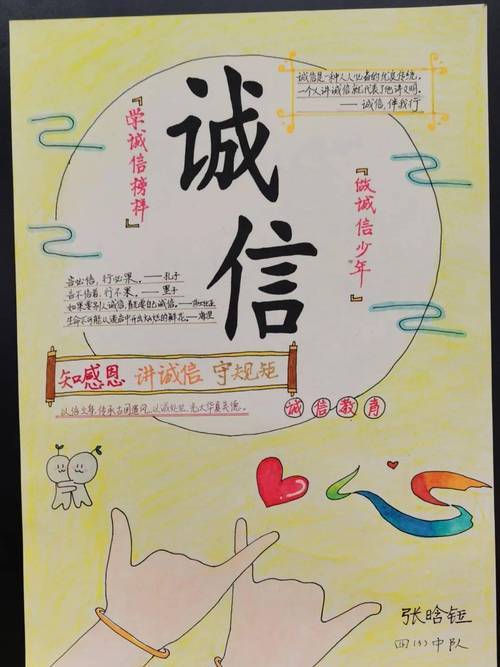 诚信是一种人人必备的优良传统,
一个人讲诚信就代表了他讲文明。
——诚信,伴我行
『学诚信榜样』
诚信
『做诚信少年』
言必信,行必果。——孔子
言不信者,行不果。——墨子
如果要别人诚信,首先要自己诚信。——莎士比亚
生命不可能从谎言中开出灿烂的鲜花。——海涅
知感恩 讲诚信 守规矩
以信立身,传承古国遗风,以诚处世,光大华夏美德。
诚信教育
张晗钰
四(3)中队